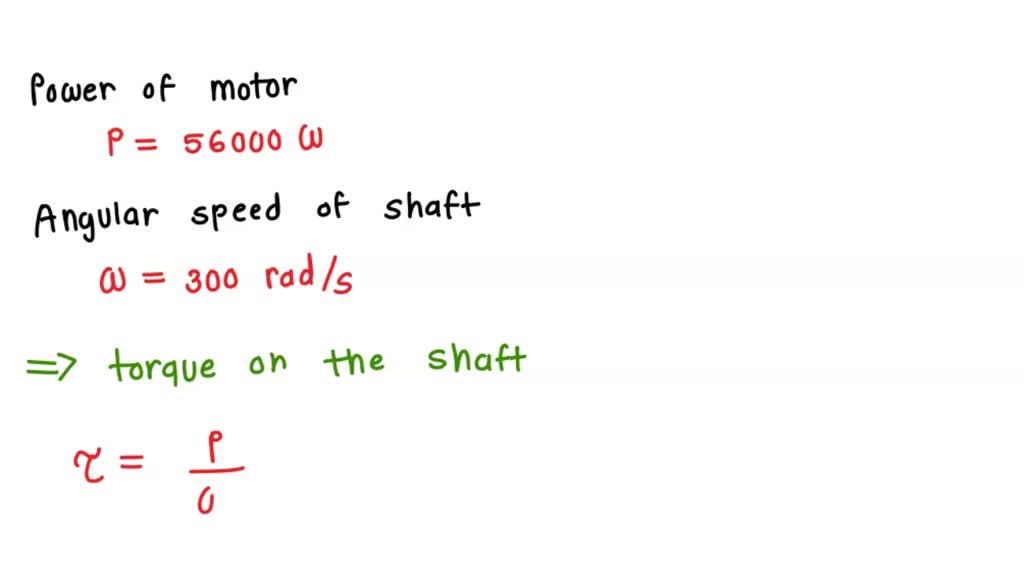 Power of motor
P = 56000 W
Angular speed of shaft
ω = 300 rad/s
⇒ torque on the shaft
τ = P